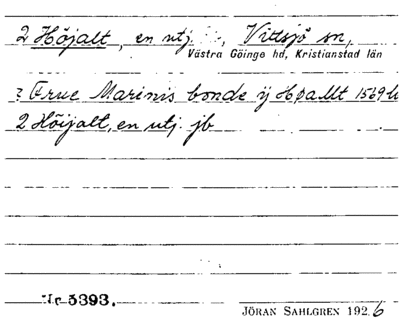 2 Höjalt, en utj. , Vittsjö sn,
Västra Göinge hd, Kristianstad län
? Frue Marinis bonde ij Høallt 1569
2 Höijalt, en utj. jb
Nr 5393.
JÖRAN SAHLGREN 1926